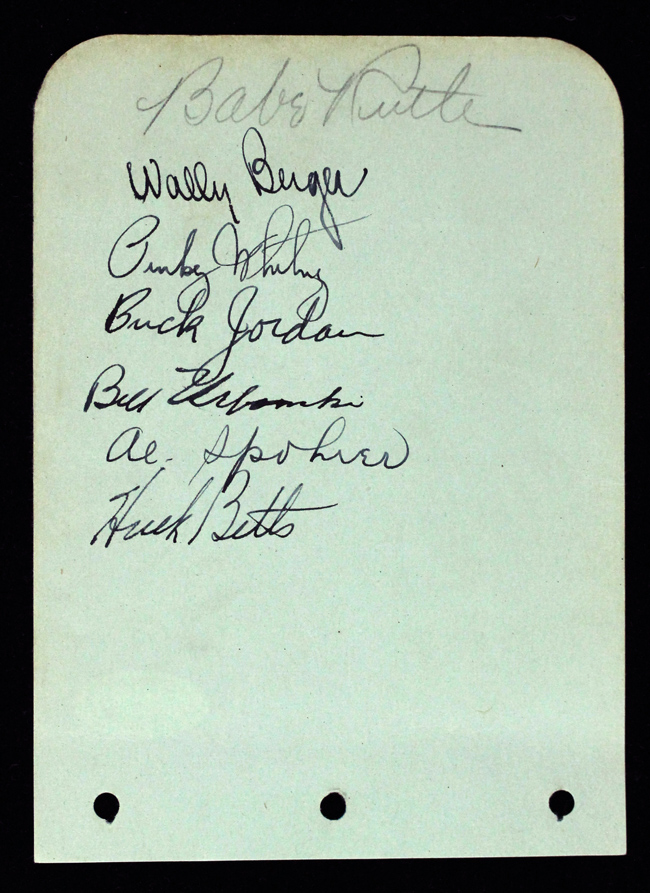 Babe Ruth
Wally Berger
Pinkey Whitney
Buck Jordan
Bill Urbanski
Al. Spohrer
Huck Betts